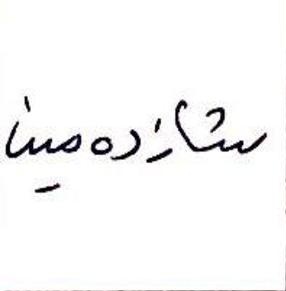 شازده مینا